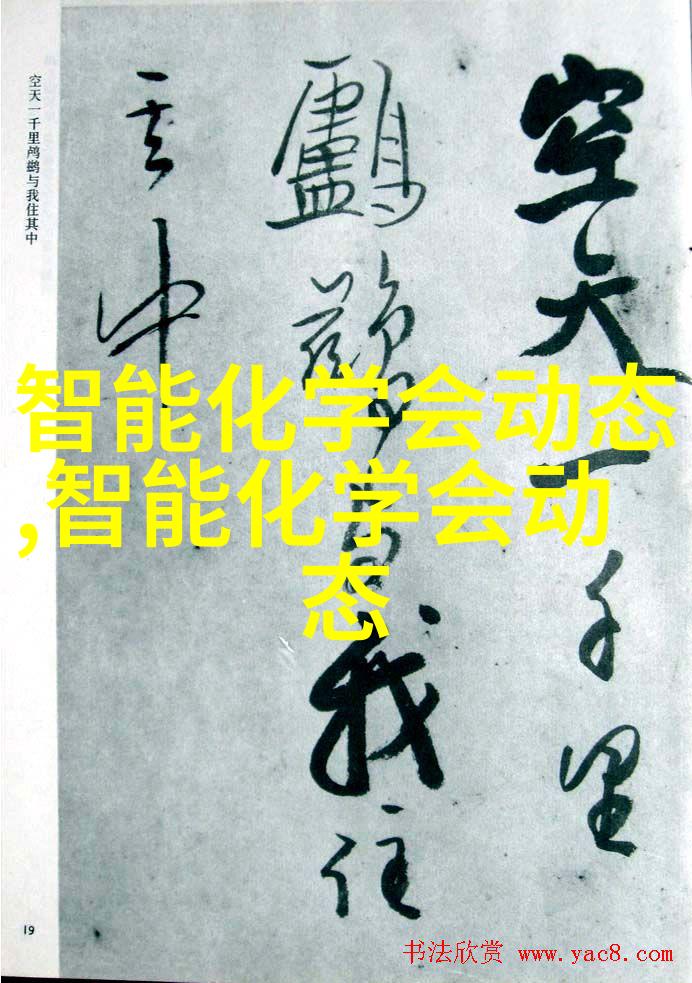 空天一千里鸬鹚与我住其中
空天一千里
鸕鷀与我住
其中
智能化学会动态
,智能化学会动
态
19
书法欣赏 www.yac8.com